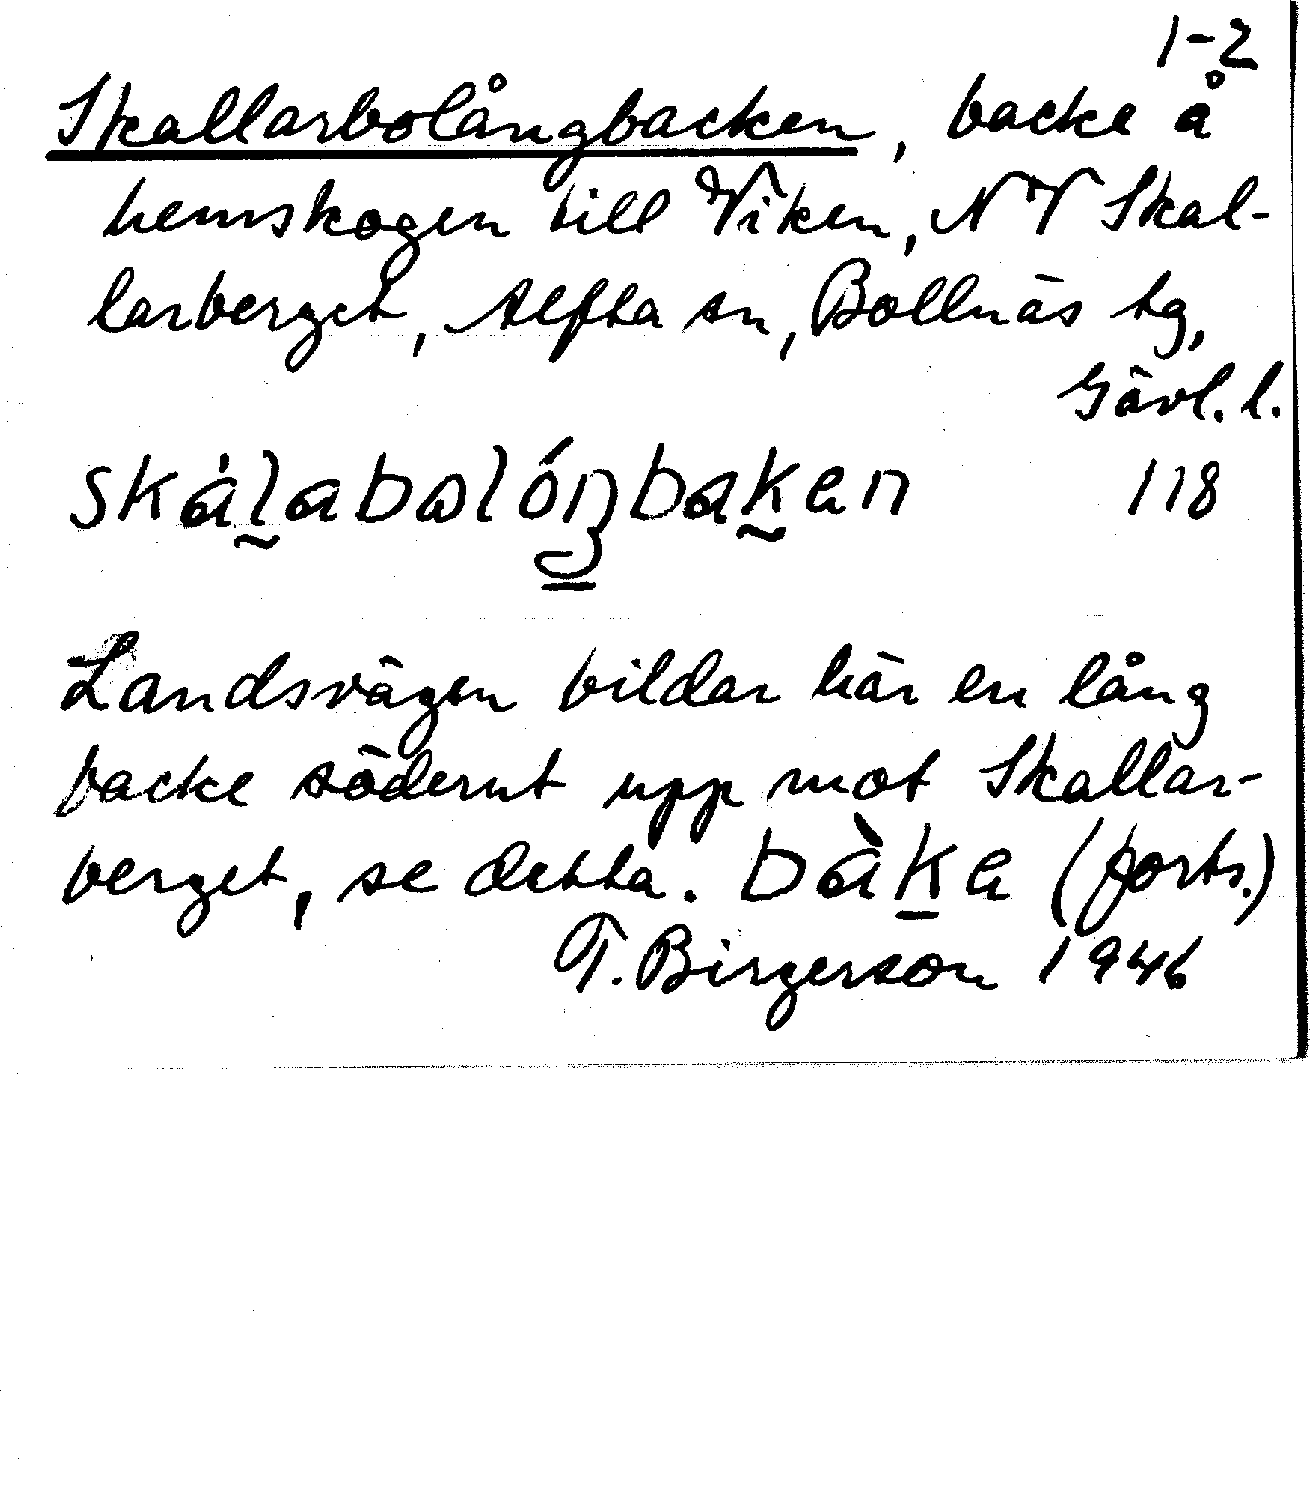 1-2
Skallarbolångbacken, backe å
hemskogen till Viken, NV Skal-
larberget, Alfta sn, Bollnäs tg,
Gävl. l.
skálabolóŋbaken 118
Landsvägen bildar här en lång
backe söderut upp mot Skallar-
berget, se detta. bàka (forts.)
T. Birgerson 1946